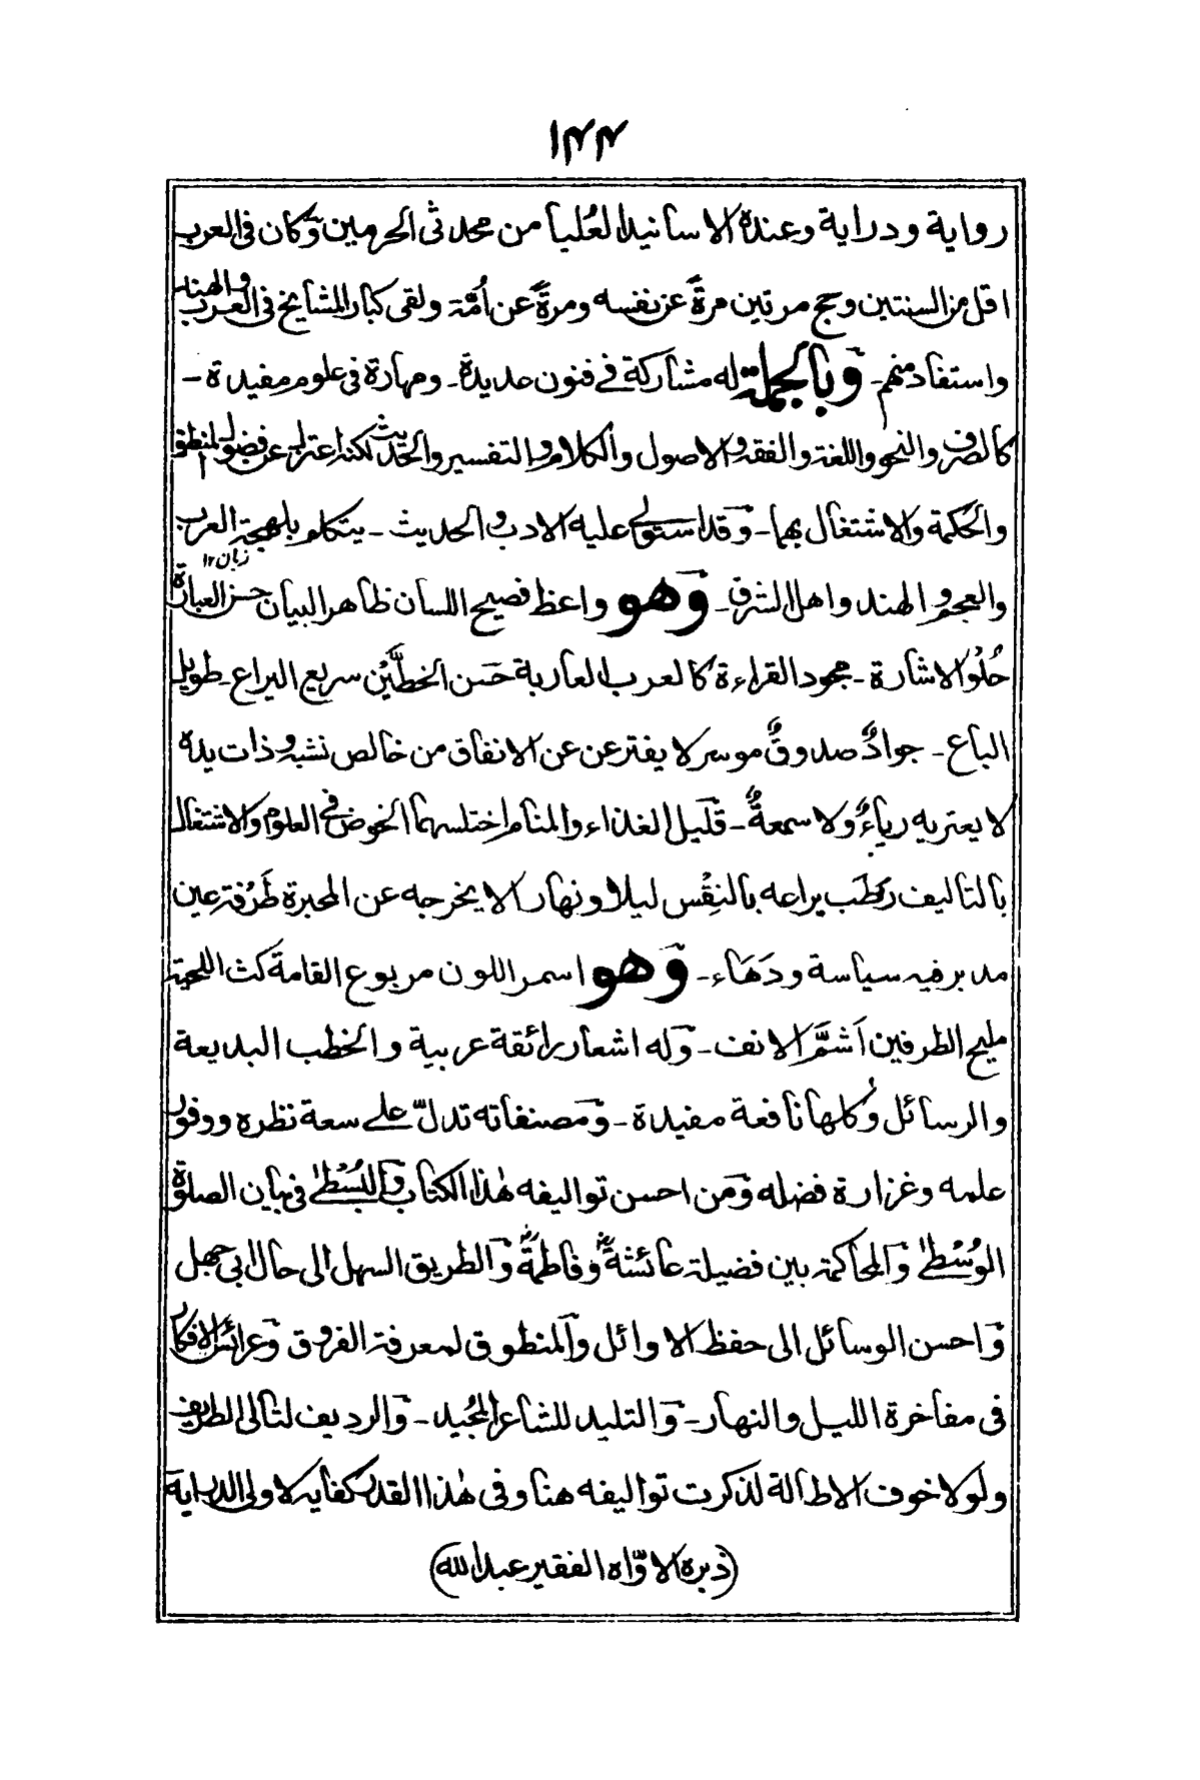 ۱۴۴
رواية ودراية وعنده الاسانيد العُليا من محدثى الحرمين وَكان فى العرب
اقل من السنتين وحج مرتين مرةً عن نفسه ومرةً عن اُمّه ولقى كبار المشايخ فى العرب والهند
واستفاد منهم۔ وَبالجملة له مشاركة فے فنون حديدة۔ ومهارة فى علوم مفيدة۔
كالصرف والنحو واللغة والفقه والاصول والكلام والتفسير والحديث لكنه اعتزل عن فضول المنطق
والحكمة والاشتغال بهما۔ وَقد استولى عليه الادب والحديث۔ يتكلم بلهجة العرب
زبان ۱۲
والعجم والهند واهل الشرق۔ وَهو واعظ فصيح اللسان ظاهر البيان حسن العبارة
حُلوُ الاشارة۔ مجود القراءة كالعرب العاربة حَسَن الخطَّيْن سريع اليراع۔ طويل
الباع۔ جوادٌ صدوقٌ موسر لا يفتر عن عن الانفاق من خالص نشبه وذات يده
لا يعتريه رياءٌ ولا سمعةٌ۔ قَليل الغذاء والمنام اختلسهما الخوض فى العلوم والاشتغال
بالتاليف رَطَب يراعه بالنِقْس ليلا ونهارا لا يخرجه عن المحبرة طَرْفة عين
مدبر فيه سياسة ودَهَاء۔ وَهو اسمر اللون مربوع القامة كث اللحية
مليح الطرفين اَشَمَّ الانف۔ وَله اشعار رائقة عربية والخطب البديعة
والرسائل وُكلها نافعة مفيدة۔ وَمصنفاته تدلّ علے سعة نظره ووفور
علمه وغزارة فضله وَمن احسن تواليفه هٰذا الكتاب وَالبُسْطےٰ فى بيان الصلوٰة
الوُسْطےٰ وَالمحاكمة بين فضيلة عائشةؓ وَفاطمةؓ وَالطريق السهل الى حال ابى جهل
وَاحسن الوسائل الى حفظ الاوائل وَالمنطوق لمعرفة الفروق وَعرائس الافكار
فى مفاخرة الليل والنهار۔ وَالتليد للشاعر المجُيد۔ وَالرديف لتالى الطريف
ولولا خوف الاطالة لذكرت تواليفه هنا وفى هٰذا القدر كفاية لاولى الدراية
(ذبره الاوّاه الفقير عبد الله)